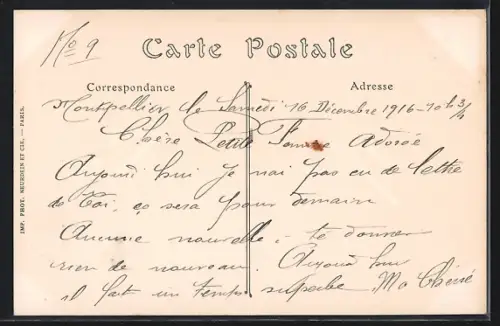 No 9
Carte Postale
Correspondance
Adresse
Montpellier le Samedi 16 Décembre 1916 - 10 h 3/4
Chère Petite Femme Adorée
Aujourd hui je n'ai pas eu de lettre
de toi, ça sera pour demain
Aucune nouvelle à te donner
rien de nouveau. Aujourd hui
il fait un temps superbe. Ma Chérie
IMP. PHOT. NEURDEIN ET CIE. — PARIS.